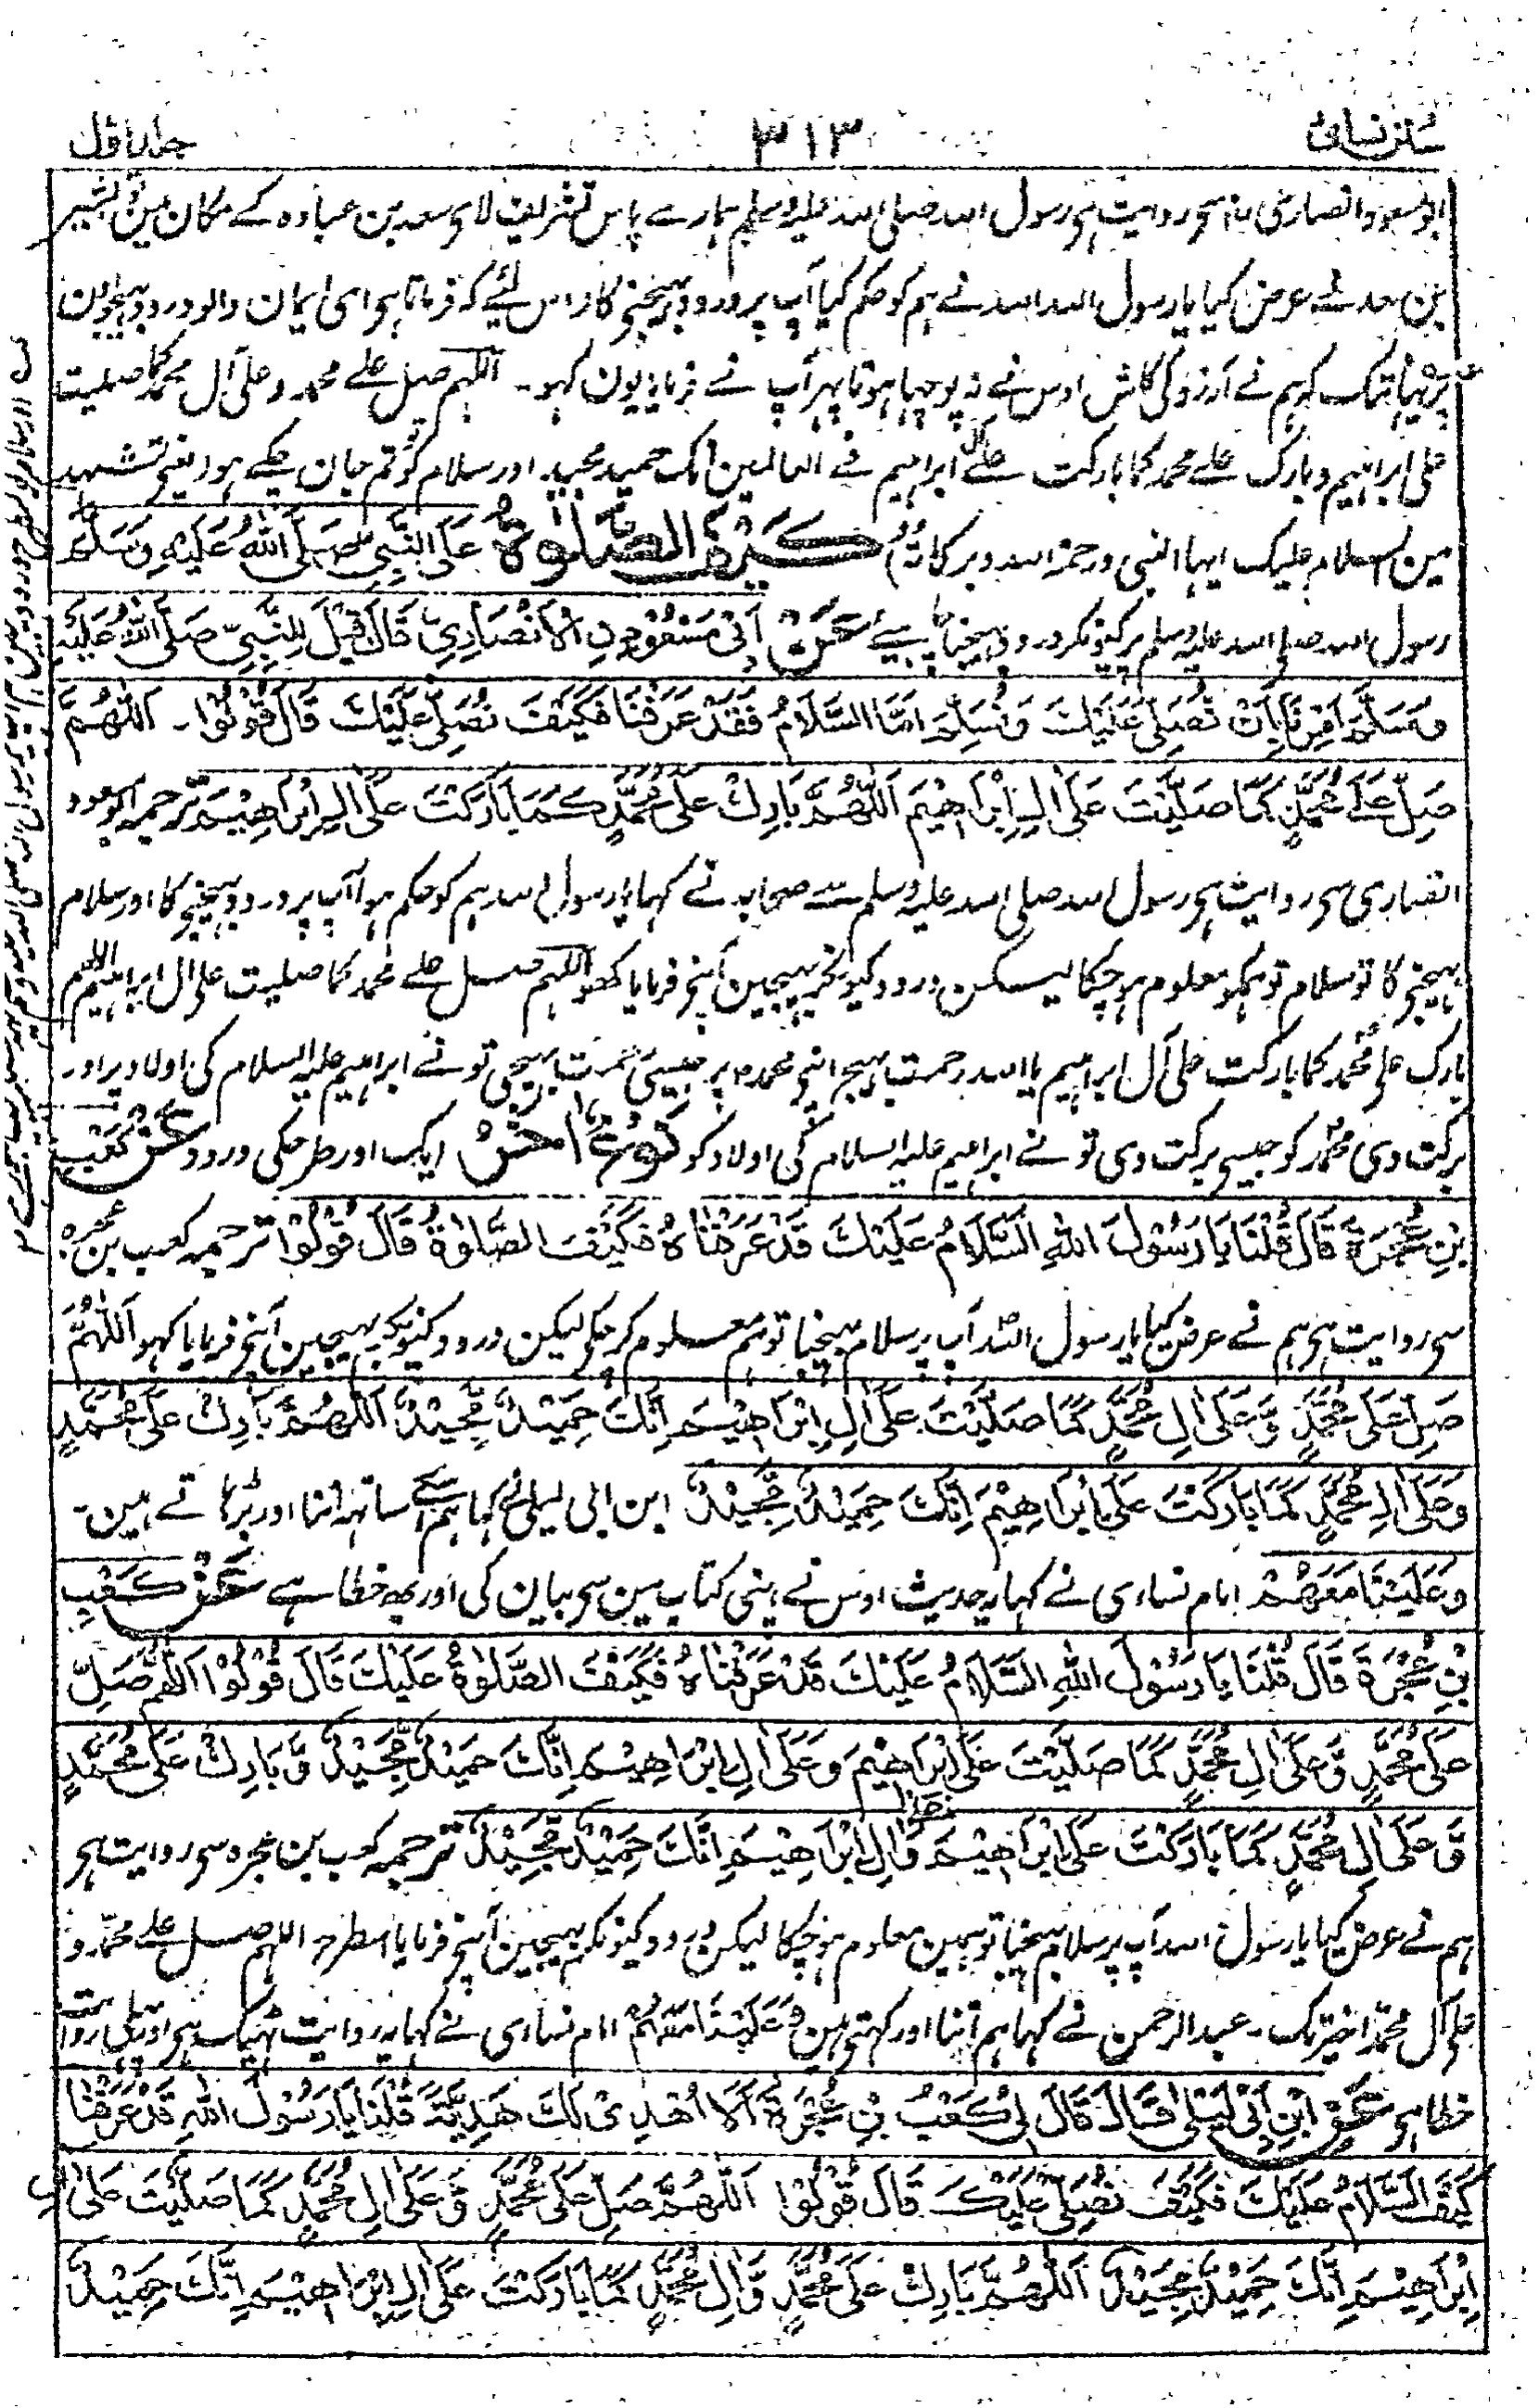 سنن نسائی ۳۱۳ جلد اول
ابومسعود انصاری رضہ سے روایت ہی رسول اللہ صلی اللہ علیہ وسلم ہمارے پاس تشریف لائے سعد بن عبادہ کے مکان مین تو بشیر
بن سعد نے عرض کیا یا رسول اللہ اللہ نے ہم کو حکم کیا آپ پر درود بھیجنے کا (اس لیئے کہ فرماتا ہی اے ایمان والو درود بھیجو ان
پر) یہانتک کہ ہم نے آرزو کی کاش اوس نے نہ پوچھا ہوتا پہر آپ نے فرمایا یون کہو۔ اللہم صل علے محمد وعلی آل محمد کما صلیت
علی ابراہیم وبارک علے محمد کما بارکت علے آل ابراہیم فے العالمین انک حمید مجید اور سلام کو تم جان چکے ہو (یعنی تشہد
مین السلام علیک ایہا النبی ورحمۃ اللہ وبرکاتہ) كَيْفَ الصَّلٰوةُ عَلَى النَّبِيِّ صَلَّى اللهُ عَلَيْهِ وَسَلَّمَ
رسول اللہ صلی اللہ علیہ وسلم پر کیونکر درود بھیجنا چاہیے عَنْ أَبِي مَسْعُودٍ الْأَنْصَارِيِّ قَالَ قِيلَ لِلنَّبِيِّ صَلَّى اللهُ عَلَيْهِ
وَسَلَّمَ أُمِرْنَا بِأَنْ نُصَلِّيَ عَلَيْكَ وَنُسَلِّمَ أَمَّا السَّلَامُ فَقَدْ عَرَفْنَا فَكَيْفَ نُصَلِّي عَلَيْكَ قَالَ قُولُوا۔ اَللّٰهُمَّ
صَلِّ عَلَى مُحَمَّدٍ كَمَا صَلَّيْتَ عَلَى آلِ إِبْرَاهِيْمَ اَللّٰهُمَّ بَارِكْ عَلَى مُحَمَّدٍ كَمَا بَارَكْتَ عَلَى آلِ إِبْرَاهِيْمَ ترجمہ ابومسعود
انصاری سے روایت ہی رسول اللہ صلی اللہ علیہ وسلم سے صحابہ نے کہا یا رسول اللہ ہم کو حکم ہوا آپ پر درود بھیجنے کا اور سلام
بھیجنے کا تو سلام تو ہمکو معلوم ہو چکا لیسکن درود کیونکر بھیجین آپنے فرمایا کھو اللہم صل علے محمد کما صلیت علی ال ابراہیم اللہم
بارک علی محمد کما بارکت علی آل ابراہیم یا اللہ رحمت بہیج اپنی محمدؐ پر جیسی رحمت بہیجی تو نے ابراہیم علیہ السلام کی اولاد پر اور
برکت دی محمدؐ کو جیسی برکت دی تو نے ابراہیم علیہ السلام کی اولاد کو نَوْعٌ اٰخَرُ ایک اور طرحکی درود عَنْ كَعْبِ
بْنِ عُجْرَةَ قَالَ قُلْنَا يَا رَسُوْلَ اللهِ اَلسَّلَامُ عَلَيْكَ قَدْ عَرَفْنَاهُ فَكَيْفَ الصَّلٰوةُ قَالَ قُوْلُوْا ترجمہ کعب بن عجرہ
سے روایت ہی ہم نے عرض کیا یا رسول اللہ آپ پر سلام بھیجنا تو ہم معلوم کر چکے لیکن درود کیونکر بھیجین آپنے فرمایا کہو اَللّٰهُمَّ
صَلِّ عَلَى مُحَمَّدٍ وَّعَلَى اٰلِ مُحَمَّدٍ كَمَا صَلَّيْتَ عَلَى اٰلِ اِبْرَاهِيْمَ اِنَّكَ حَمِيْدٌ مَّجِيْدٌ اَللّٰهُمَّ بَارِكْ عَلَى مُحَمَّدٍ
وَعَلَى اٰلِ مُحَمَّدٍ كَمَا بَارَكْتَ عَلَى اِبْرَاهِيْمَ اِنَّكَ حَمِيْدٌ مَّجِيْدٌ ابن ابی لیلیٰ نے کہا ہم اسکے ساتھ اتنا اور بڑہاتے ہین۔
وَعَلَيْنَا مَعَهُمْ امام نساءی نے کہا یہ حدیث اوس نے اپنی کتاب مین سے بیان کی اور یہ خطا ہے عَنْ كَعْبِ
بْنِ عُجْرَةَ قَالَ قُلْنَا يَا رَسُوْلَ اللهِ اَلسَّلَامُ عَلَيْكَ قَدْ عَرَفْنَاهُ فَكَيْفَ الصَّلٰوةُ عَلَيْكَ قَالَ قُوْلُوْا اَللّٰهُمَّ صَلِّ
عَلَى مُحَمَّدٍ وَّعَلَى اٰلِ مُحَمَّدٍ كَمَا صَلَّيْتَ عَلَى اِبْرَاهِيْمَ وَعَلَى اٰلِ اِبْرَاهِيْمَ اِنَّكَ حَمِيْدٌ مَّجِيْدٌ وَّبَارِكْ عَلَى مُحَمَّدٍ
وَّعَلَى اٰلِ مُحَمَّدٍ كَمَا بَارَكْتَ عَلَى اِبْرَاهِيْمَ وَاٰلِ اِبْرَاهِيْمَ اِنَّكَ حَمِيْدٌ مَّجِيْدٌ ترجمہ کعب بن عجرہ سے روایت ہی
ہم نے عرض کیا یا رسول اللہ آپ پر سلام بھیجنا تو ہمین معلوم ہو چکا لیکن درود کیونکر بھیجین آپنے فرمایا اسطرح اللہم صل علے محمد و
علی آل محمد اخیر تک۔ عبدالرحمن نے کہا ہم اتنا اور کہتی ہین وَعَلَيْنَا مَعَهُمْ امام نساءی نے کہا یہ روایت ٹھیک ہی اور پہلی روایت
خطا ہی عَنِ ابْنِ اَبِيْ لَيْلٰى قَالَ قَالَ لِيْ كَعْبُ بْنُ عُجْرَةَ اَلَا اُهْدِيْ لَكَ هَدِيَّةً قُلْنَا يَا رَسُوْلَ اللهِ قَدْ عَرَفْنَا
كَيْفَ السَّلَامُ عَلَيْكَ فَكَيْفَ نُصَلِّيْ عَلَيْكَ قَالَ قُوْلُوْا اَللّٰهُمَّ صَلِّ عَلَى مُحَمَّدٍ وَّعَلَى اٰلِ مُحَمَّدٍ كَمَا صَلَّيْتَ عَلَى اٰلِ
اِبْرَاهِيْمَ اِنَّكَ حَمِيْدٌ مَّجِيْدٌ اَللّٰهُمَّ بَارِكْ عَلَى مُحَمَّدٍ وَّاٰلِ مُحَمَّدٍ كَمَا بَارَكْتَ عَلَى اٰلِ اِبْرَاهِيْمَ اِنَّكَ حَمِيْدٌ